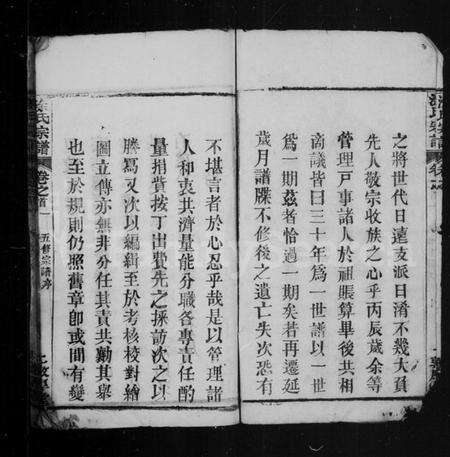 之將世代日遠支派日淆不幾大負
先人敬宗收族之心乎丙辰歲余等
管理戸事諸人於祖賬算畢後共相
商議皆曰三十年為一世譜以一世
為一期茲者恰過一期矣若再遷延
歲月譜牒不修後之遺亡失次恐有
不堪言者於心忍乎哉是以管理諸
人和衷共濟量能分職各專責任酌
量捐貲按丁出費先之採訪次之以
謄寫又次以編緝至於考核校對繪
圖立傳亦無非分任其責共勷其舉
也至於規則仍照舊章卽或間有變
氏宗譜
卷之首
五修宗譜序